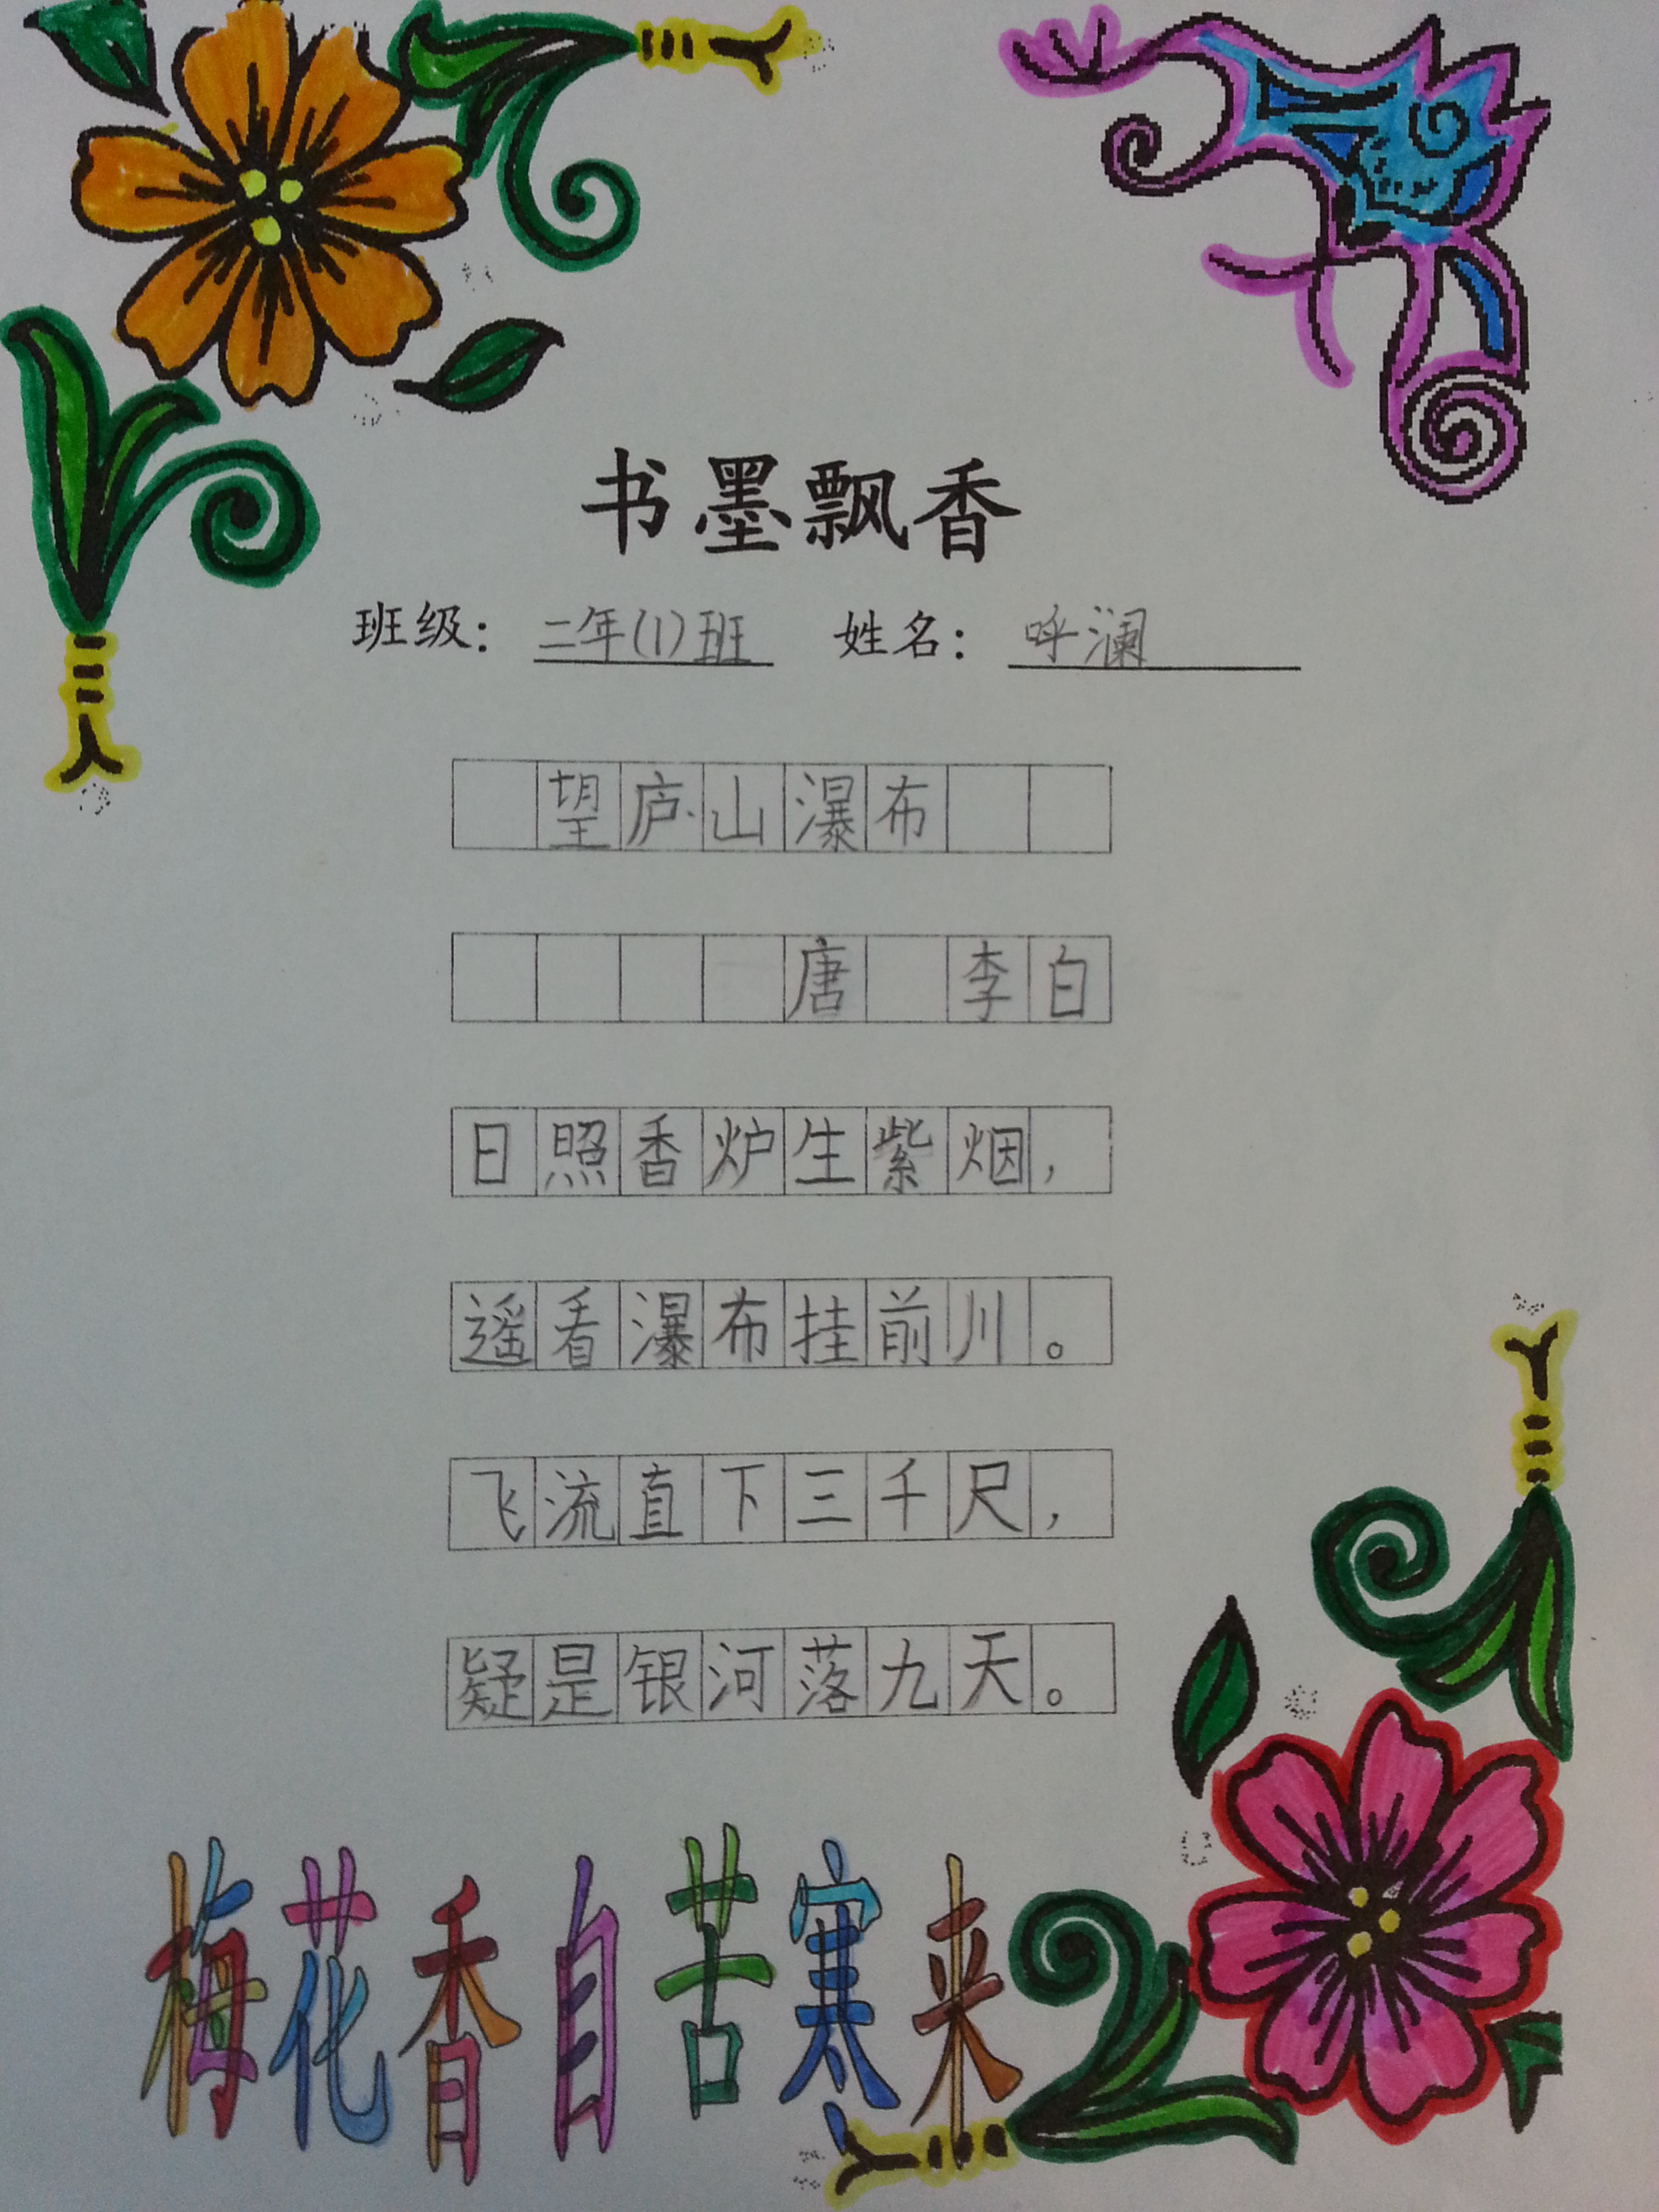 书墨飘香
班级：二年(1)班 姓名：呼澜
望庐山瀑布
唐 李白
日照香炉生紫烟，
遥看瀑布挂前川。
飞流直下三千尺，
疑是银河落九天。
梅花香自苦寒来